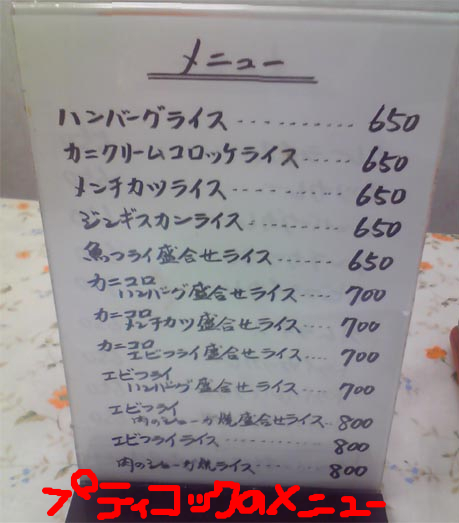 メニュー
ハンバーグライス ........... 650
カニクリームコロッケライス ..... 650
メンチカツライス ........... 650
ジンギスカンライス .......... 650
魚フライ盛合せライス ........ 650
カニコロ
ハンバーグ盛合せライス .... 700
カニコロ
メンチカツ盛合せライス .... 700
カニコロ
エビフライ盛合せライス .... 700
エビフライ
ハンバーグ盛合せライス .... 700
エビフライ
肉のショーガ焼盛合せライス .. 800
エビフライライス .......... 800
肉のショーガ焼ライス ........ 800
プティコックのメニュー